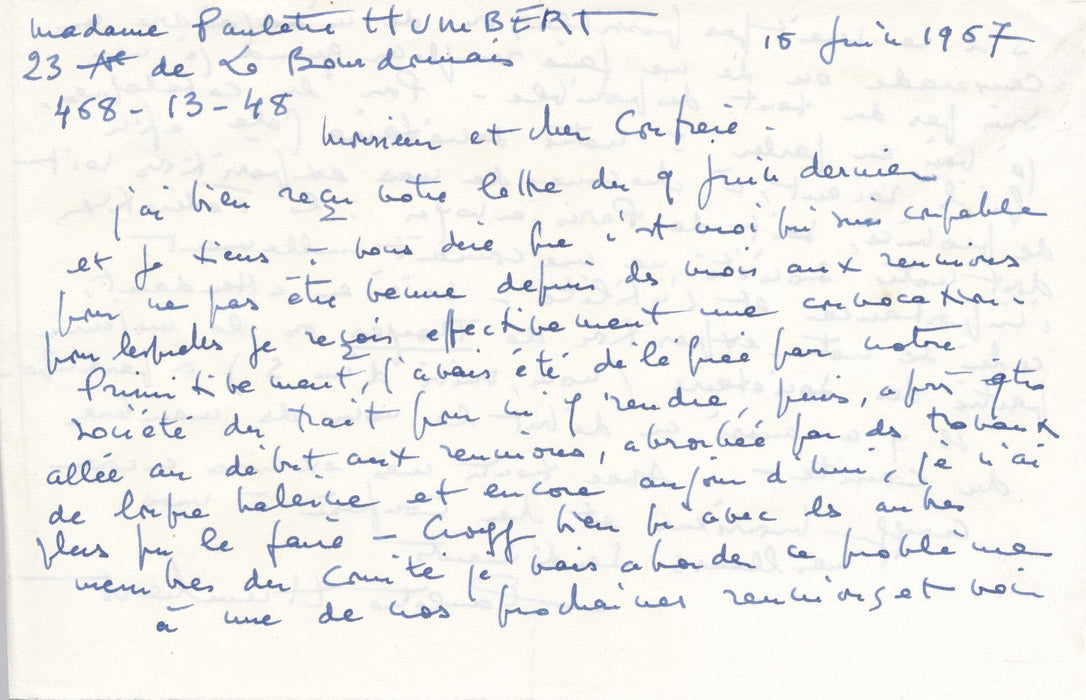 Madame Paulette HUMBERT
15 Juin 1967
23 Ave de La Bourdonnais
468-13-48
Monsieur et cher Confrère -
j'ai bien reçu votre lettre du 9 Juin dernier
et je tiens à vous dire que c'est moi qui suis coupable
pour ne pas être venue depuis des mois aux reunions
pour lesquelles je reçois effectivement une convocation.
Primitivement, j'avais été déléguée par notre
société du trait pour m'y rendre, puis, après être
allée au début aux reunions, absorbée par des travaux
de longue haleine et encore aujourd'hui, je n'ai
plus pu le faire - Croyez bien qu'avec les autres
membres du Comité je vais aborder ce problème
à une de nos prochaines reunions et voir